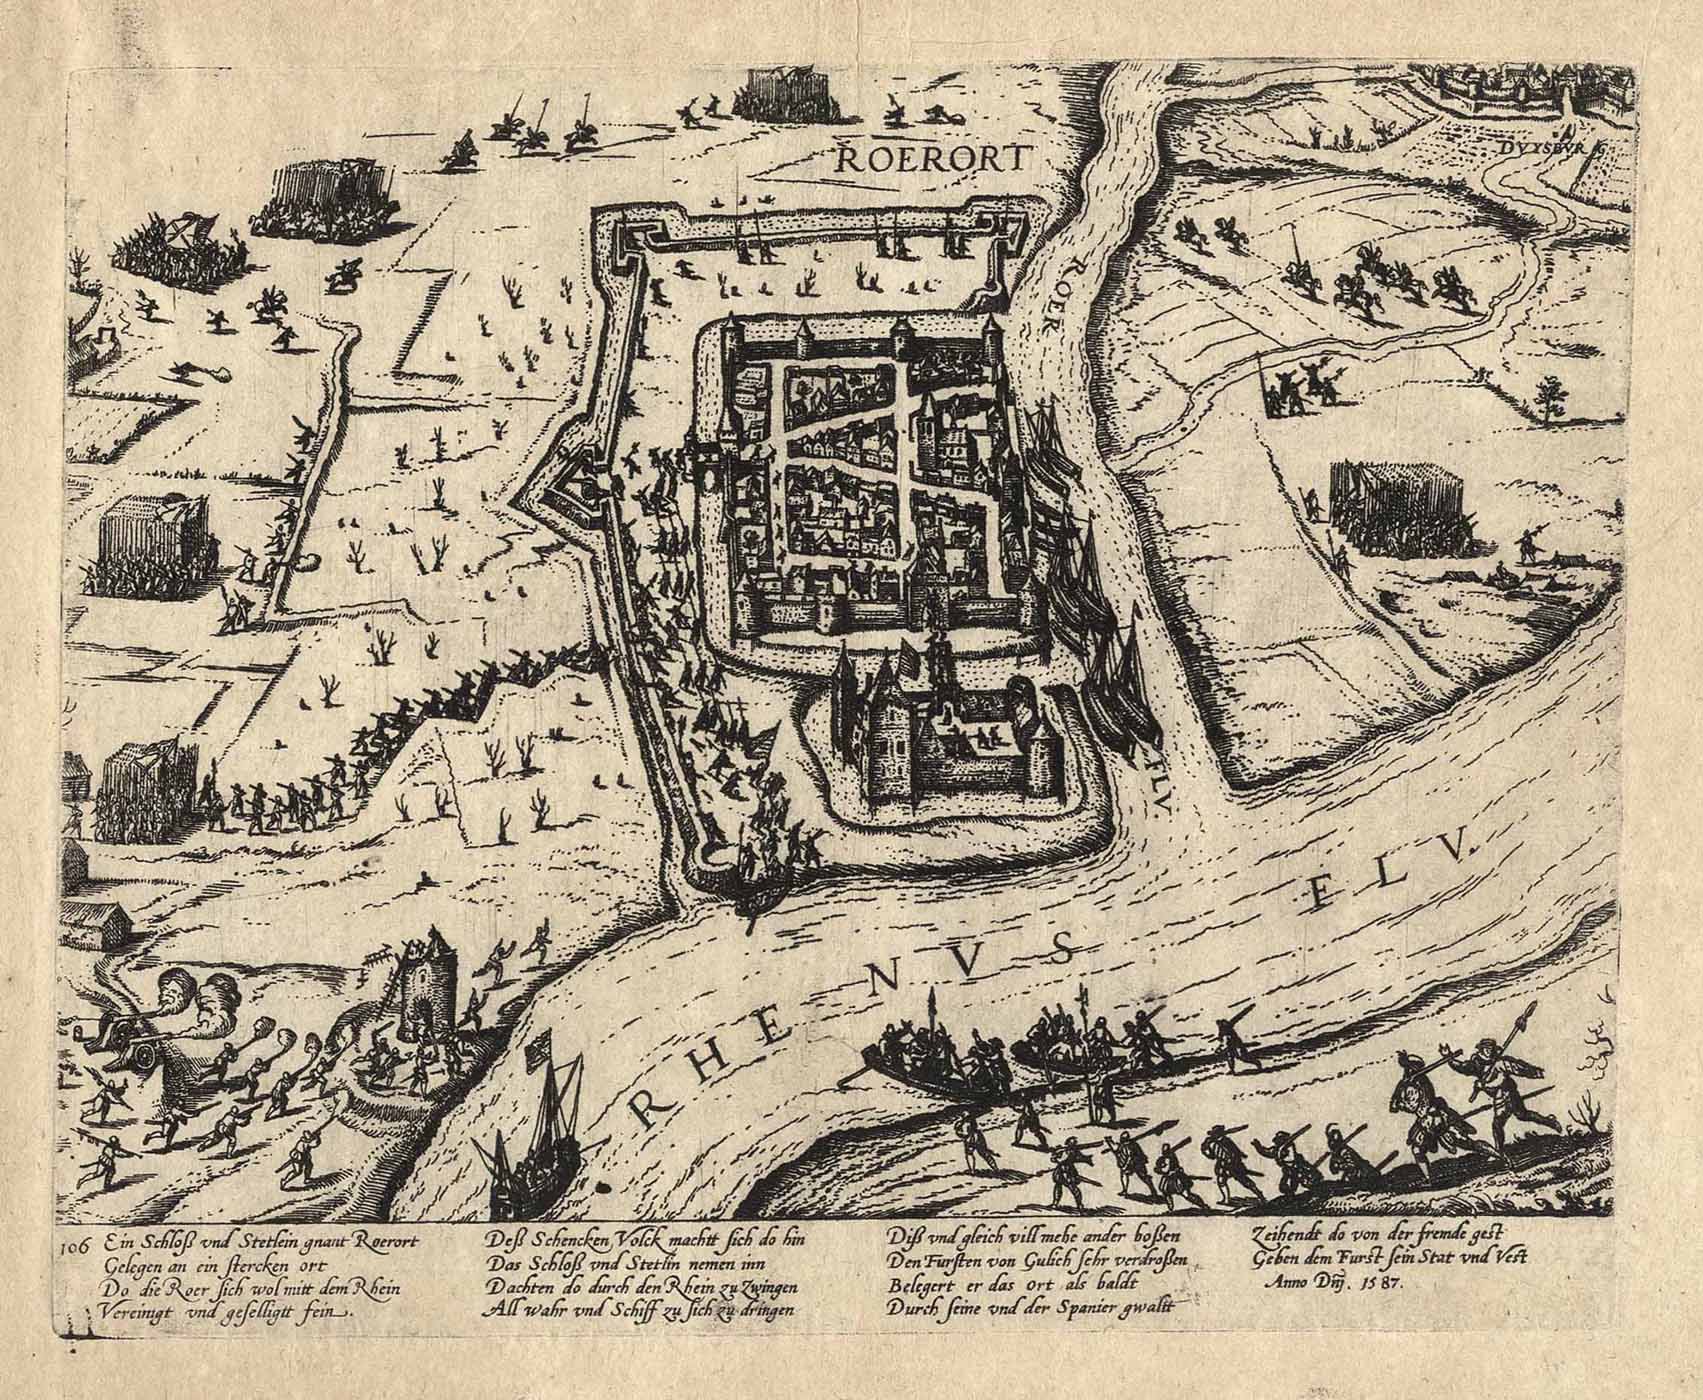 ROERORT
DVYSBVRG
ROER
FLV.
RHENVS FLV.
106 Ein Schloß vnd Stetlein gnant Roerort
Gelegen an ein stercken ort
Do die Roer sich wol mitt dem Rhein
Vereinigt vnd geselligtt fein.
Deß Schencken Volck machtt sich do hin
Das Schloß vnd Stetlin nemen inn
Dachten do durch den Rhein zu Zwingen
All wahr vnd Schiff zu sich zu dringen
Diß vnd gleich vill mehe ander boßen
Den Fursten von Gulich sehr verdroßen
Belegert er das ort als baldt
Durch seine vnd der Spanier gwaltt
Zeihendt do von der fremde gest
Geben dem Furst sein Stat vnd Vest
Anno Dnj. 1587.